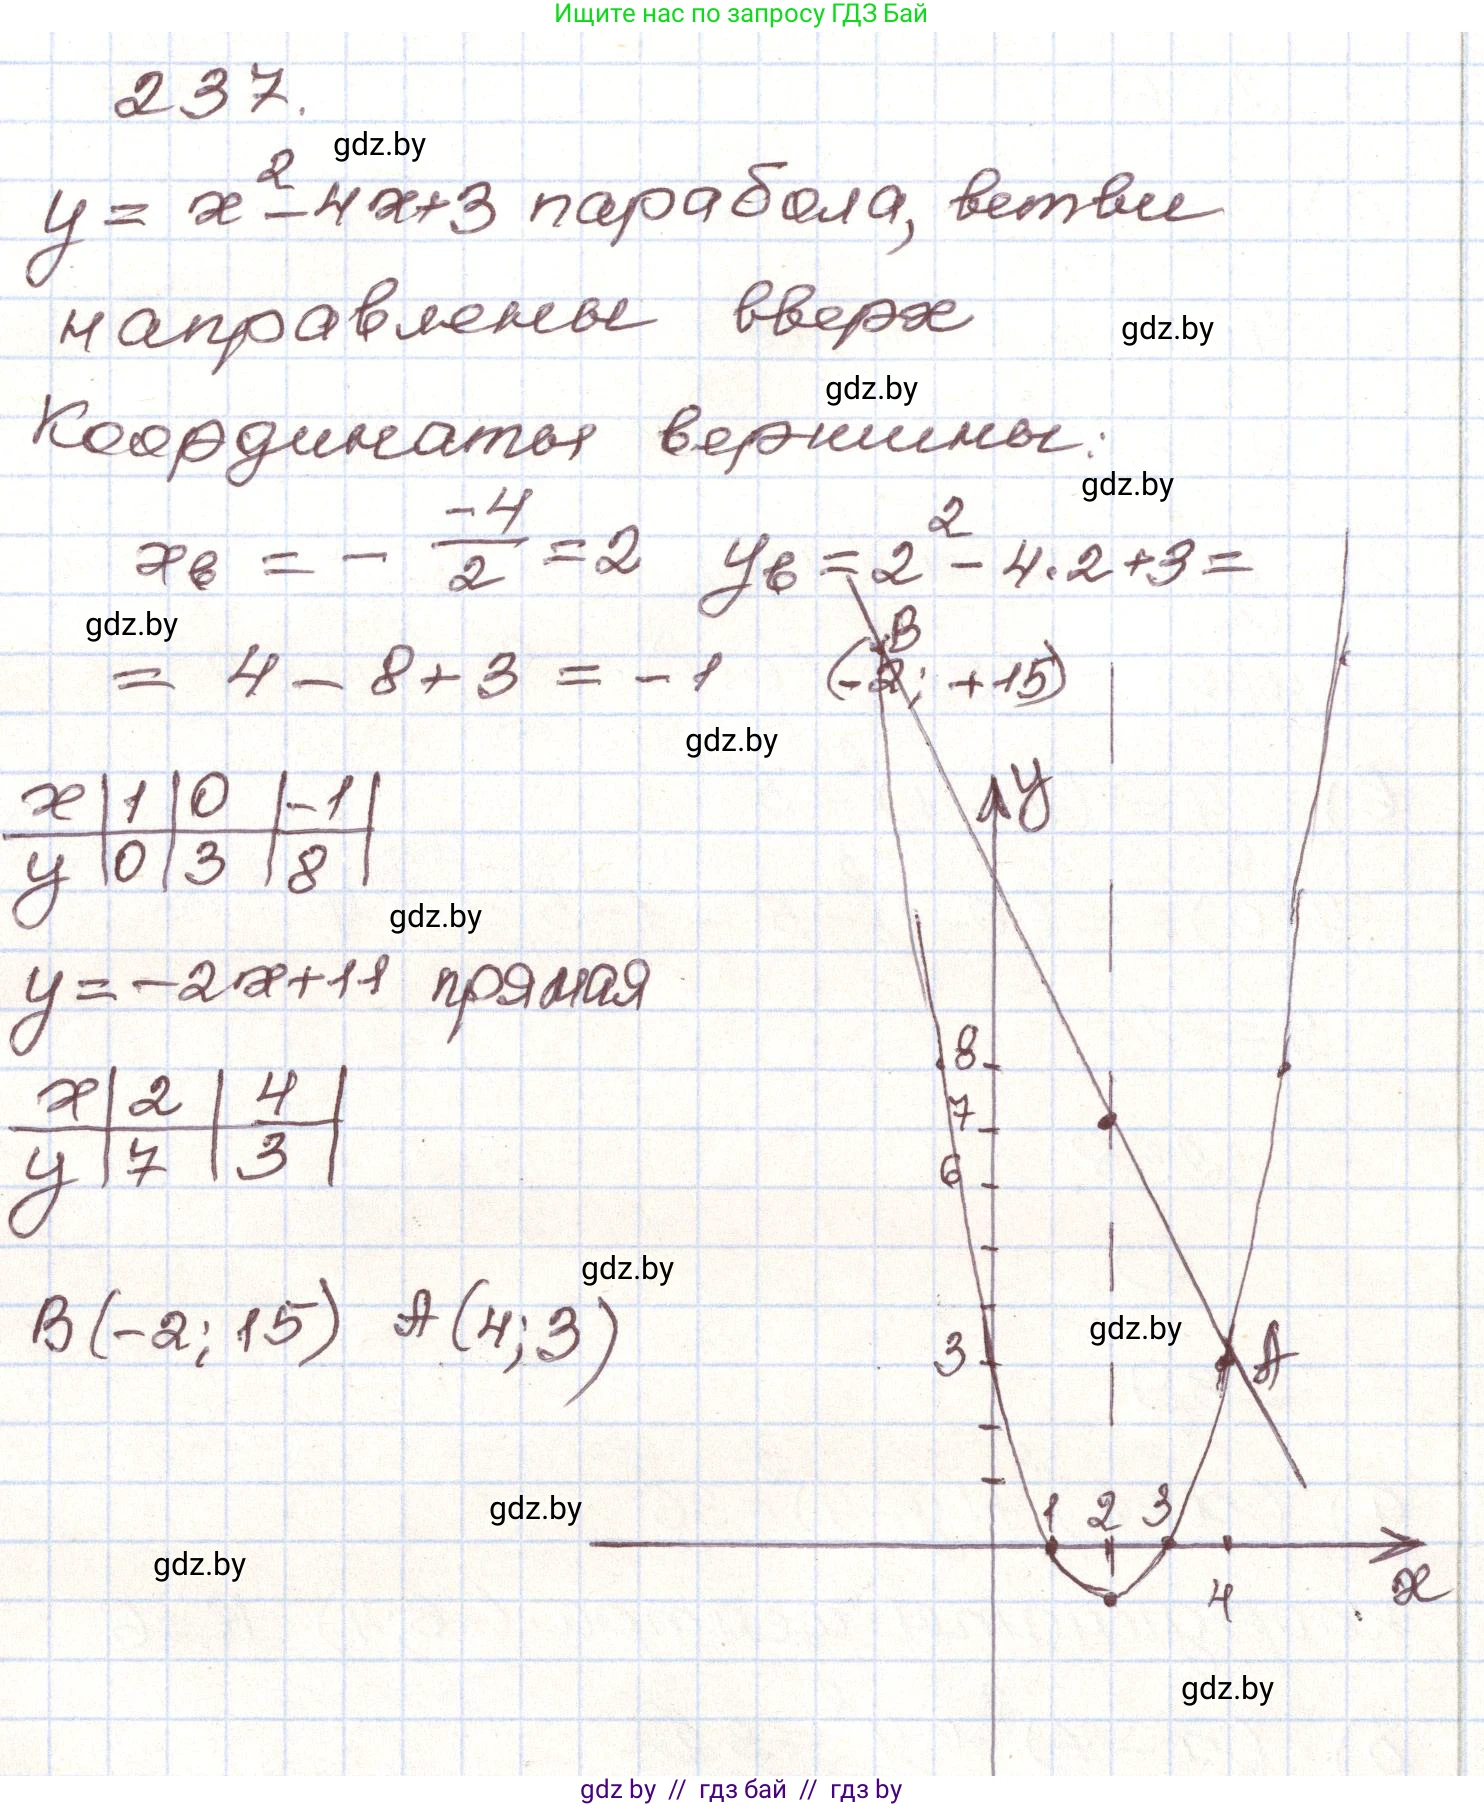 Ищите нас по запросу ГДЗ Бай
237.
gdz.by
y = x² - 4x+3 парабола, ветви
направлены вверх
gdz.by
gdz.by
Координаты вершины:
gdz.by
xв = - -4/2 = 2 yв = 2² - 4·2+3 =
gdz.by
B
= 4 - 8 + 3 = -1 (-2; +15)
gdz.by
y
x | 1 | 0 | -1 |
y | 0 | 3 | 8 |
gdz.by
y = -2x+11 прямая
8
x | 2 | 4 |
7
y | 7 | 3 |
6
gdz.by
B(-2; 15) A(4; 3)
gdz.by
3 A
gdz.by
1 2 3
gdz.by
4 x
gdz.by
gdz by // гдз бай // гдз by